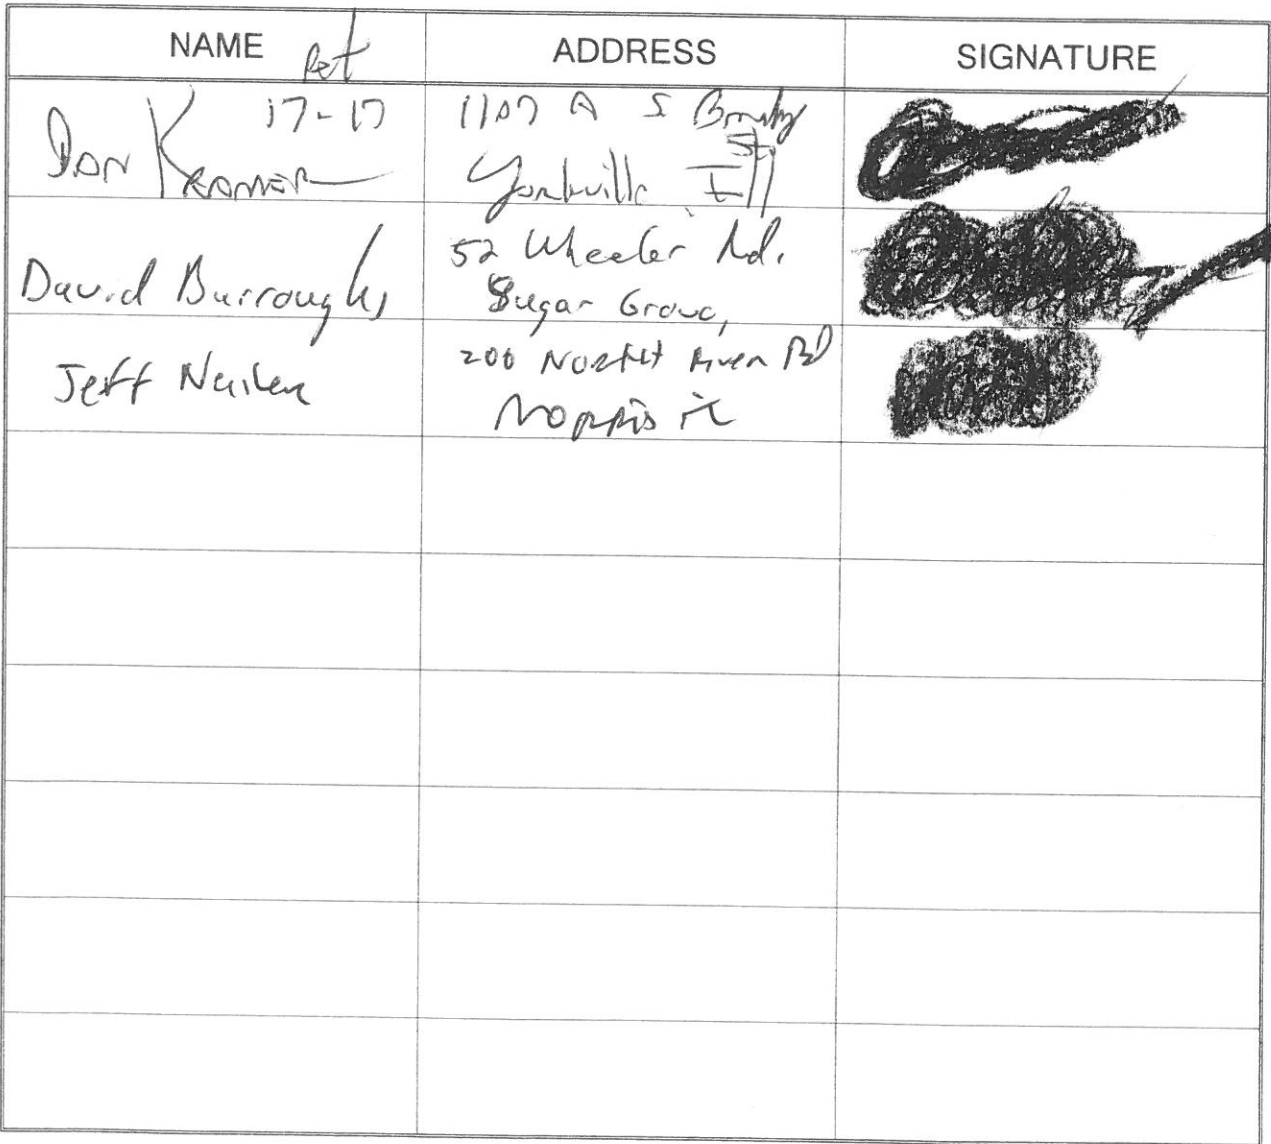 NAME Pet ADDRESS SIGNATURE
17-17 1107 A S
Don Kramer Yorkville Ill
David Burroughs 52 Wheeler Rd.
Sugar Grove,
Jeff 200 North River Rd
Morris il